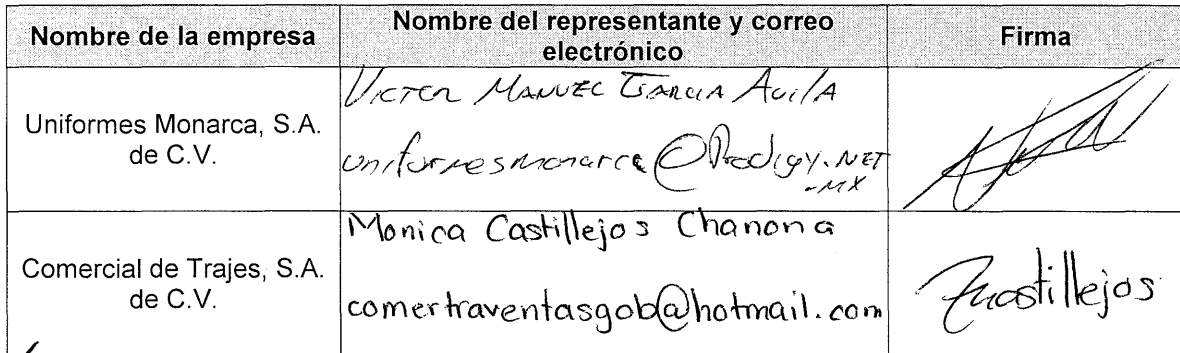 Nombre de la empresa
Nombre del representante y correo
electrónico
Firma
Uniformes Monarca, S.A.
de C.V.
VICTOR MANUEL GARCIA AVILA
uniformesmonarca@Prodigy.NET
.MX
Comercial de Trajes, S.A.
de C.V.
Monica Castillejos Chanona
comertraventasgob@hotmail.com